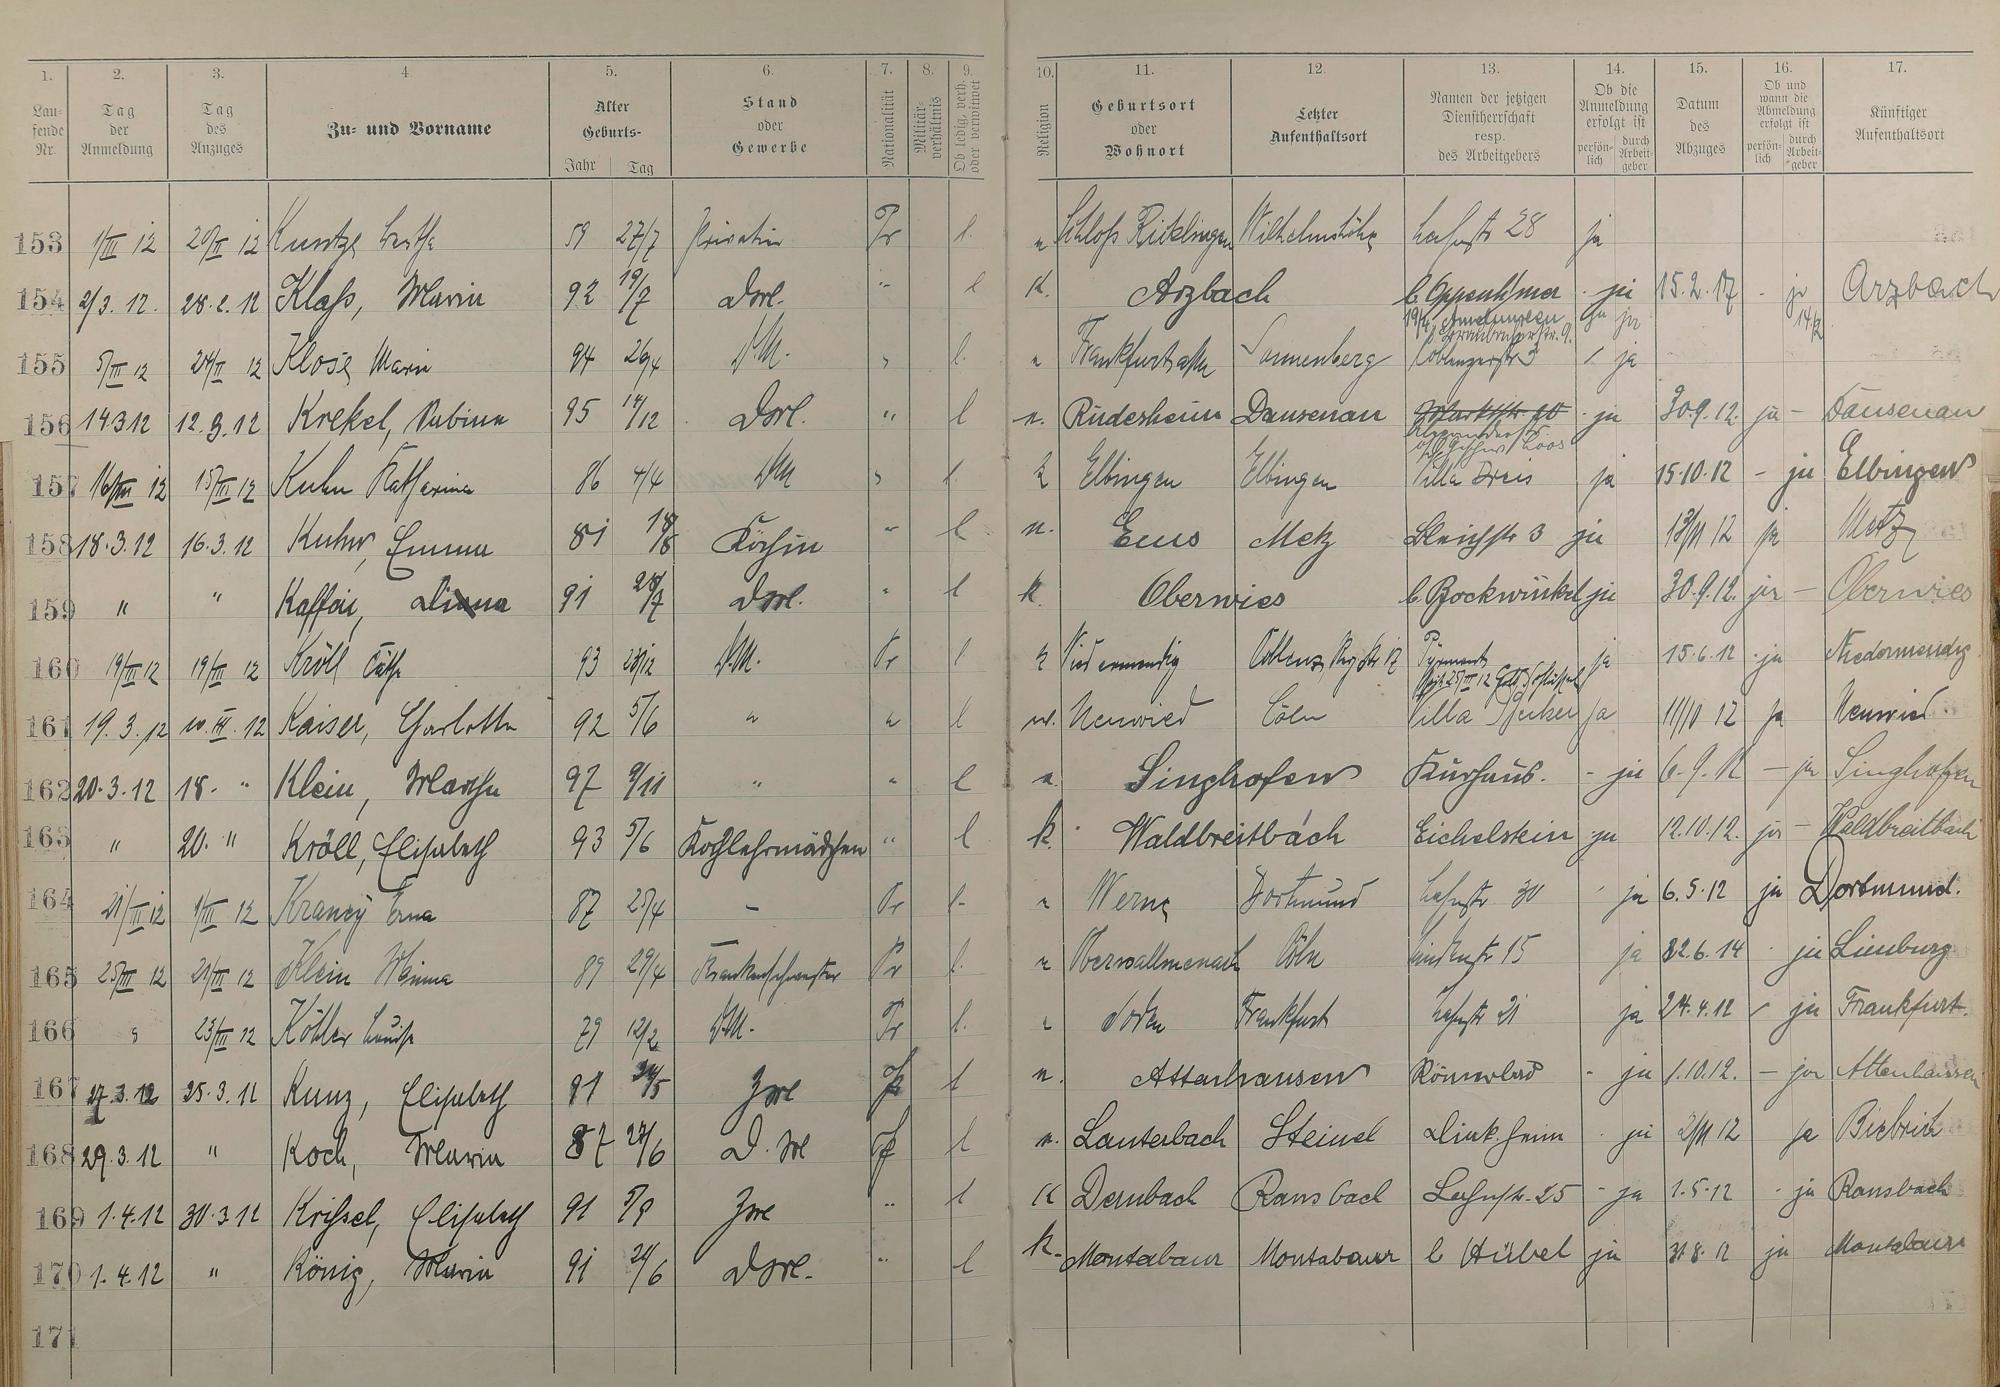 1. 2. 3. 4. 5. 6. 7. 8. 9. 10. 11. 12. 13. 14. 15. 16. 17.
Laufende Nr. Tag der Anmeldung Tag des Anzuges Zu- und Vorname Alter Geburts- Jahr Tag Stand oder Gewerbe Nationalität Militärverhältnis Ob ledig, verh. oder verwitwet Religion Geburtsort oder Wohnort Letzter Aufenthaltsort Namen der jetzigen Dienstherrschaft resp. des Arbeitgebers Ob die Anmeldung erfolgt ist persönlich durch Arbeitgeber Datum des Abzuges Ob und wann die Abmeldung erfolgt ist persönlich durch Arbeitgeber Künftiger Aufenthaltsort
153 1/III 12 20/II 12 Kuntze 59 27/7 Privatin Pr l. Schloß Ricklingen Wilhelmshöhe 28 ja
154 2/3. 12. 28. 2. 12 Klaß, Maria 92 19/7 DM. " l K. Arzbach b. Oppenheimer - ja 15. 2. 17 - ja Arzbach
155 5/III 12 24/II 12 Klose Marie 94 26/4 D.M. " l. Frankfurt Sonnenberg Coblenzerstr 3 ja
156 14.3.12 12. 3. 12 Krekel, Sabina 95 14/12 DM. " l Rüdesheim Dausenau - ja 30.9.12. ja - Dausenau
157 16/III 12 15/III 12 Kuhn Katharina 86 4/4 DM " l. k Elbingen Elbingen Villa ja 15.10.12 - ja Elbingen
158 18.3.12 16.3.12 Kuhn, Emma 81 18/8 Köchin " l Ems Metz Bleichstr 3 ja 13/11 12 ja Metz
159 " " Kaffai, 91 28/7 DM. " l k. Oberwies b. Bockwinkel ja 30.9.12. ja - Oberwies
160 19/III 12 19/III 12 Kröll Käthe 93 D.M. Pr l k Niedermendig Coblenz ja 15.6.12 ja Niedermendig
161 19. 3. 12 III. 12 Kaiser, Charlotte 92 5/6 " " l Neuwied Cöln Villa ja 12 ja Neuwied
162 20.3.12 18. " Klein, Martha 97 9/11 " " l Singhofen Kurhaus. - ja 6.9.12 - ja Singhofen
163 " 20. " Kröll, Elisabeth 93 5/6 Kochlehrmädchen " l k. Waldbreitbach Eichelstein ja 12.10.12. ja - Waldbreitbach
164 21/III 12 1/III 12 Erna 87 25/4 - Pr l. Werne Dortmund Lahnstr 30 ja 6.5.12 ja Dortmund.
165 25/III 12 21/III 12 Klein Minna 89 29/4 Krankenschwester Pr l. Oberwallmenach Cöln Lindenstr 15 ja 22.6.14 ja Limburg
166 " 23/III 12 Köhler Luise 79 12/2 D.M. Pr l. Soden Frankfurt Lahnstr 21 ja 24.4.12 ja Frankfurt.
167 27.3.12 25.3.12 Kunz, Elisabeth 91 l Attenhausen Römerbad - ja 1.10.12. - ja Attenhausen
168 29.3.12 " Koch, Maria 87 27/6 D. M l Lauterbach ja 2/11 12 ja Biebrich
169 1.4.12 30.3.12 Krissel, Elisabeth 91 5/9 " l K Dernbach Ransbach Lahnstr. 25 - ja 1.5.12 - ja Ransbach
170 1.4.12 " König, Maria 91 24/6 DM. " l k. Montabaur Montabaur b Hübel ja 31.8.12 ja Montabaur
171